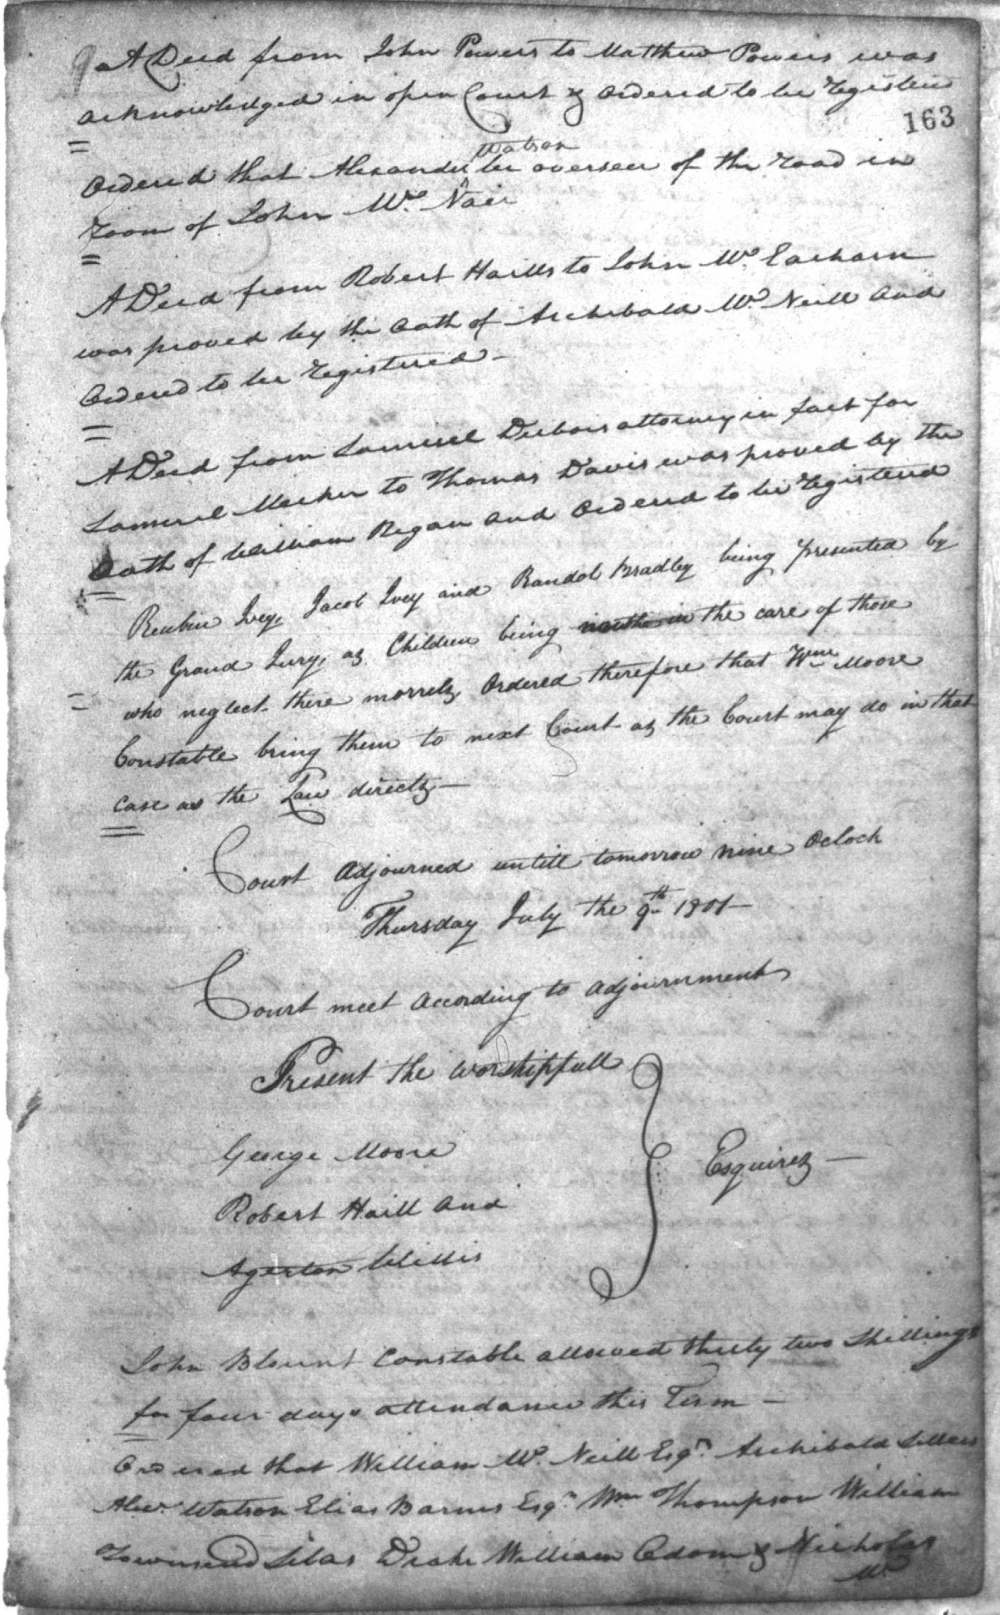 A Deed from John Powers to Matthew Powers was
acknowledged in open Court & ordered to be Registered
163
Watson
Ordered that Alexander be overseer of the road in
room of John Mc Nair
A Deed from Robert Haills to John Mc Eacharn
was proved by the oath of Archibald Mc Neill and
Ordered to be Registered -
A Deed from Samuel Dubois attorney in fact for
Samuel Meeker to Thomas Davis was proved by the
Oath of William Regan and Ordered to be Registered
Reubin Ivey, Jacob Ivey and Randol Bradley being presented by
the Grand Jury, as Children being in the care of those
who neglect there morrels, Ordered therefore that Wm Moore
Constable bring them to next Court as the Court may do in that
case as the Law directs —
Court adjourned untill tomorrow nine Oclock
Thursday July the 9th 1801 —
Court meet according to adjournment
Present the worshipfull
George Moore
Robert Haill and
Esquires —
Agerton Willis
John Blount Constable allowed thirty two Shillings
for four days attendance this Term —
Ordered that William Mc Neill Esqr. Archibald Sellers
Alexr. Watson Elias Barnes Esqr. Wm Thompson William
Townsend Silas Drake William Odom & Nicholas
Mc